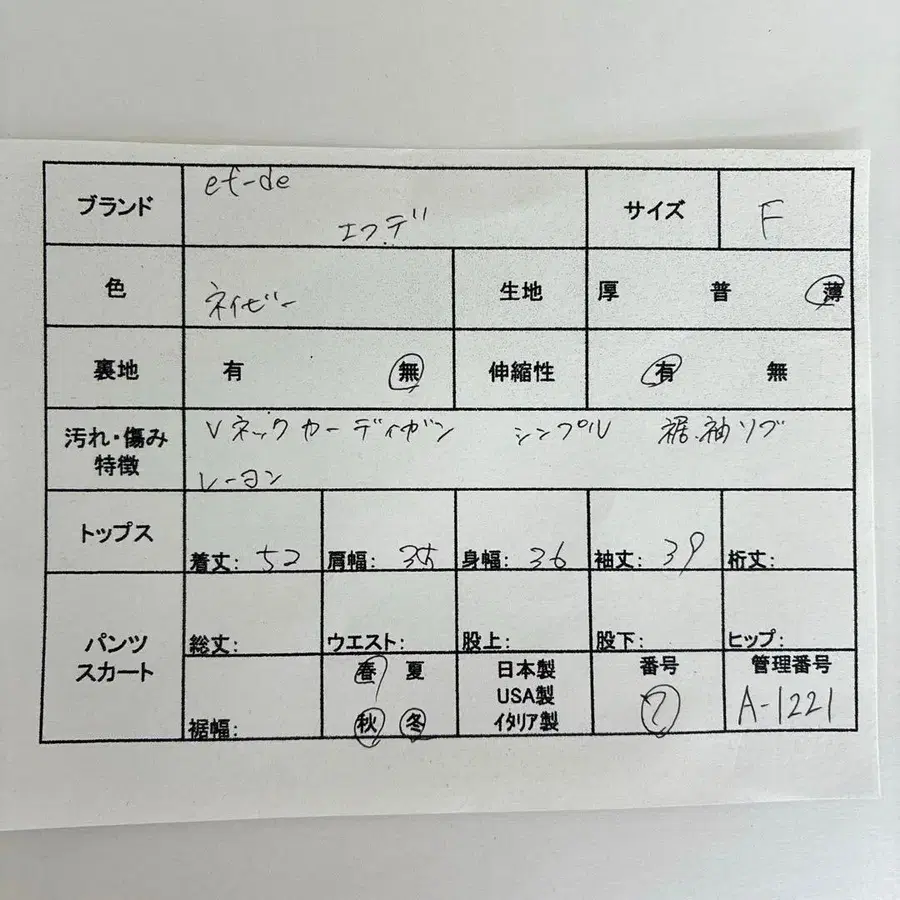 ブランド ef-de エフデ サイズ F
色 ネイビー 生地 厚 普 薄
裏地 有 無 伸縮性 有 無
汚れ・傷み 特徴 Vネックカーディガン シンプル 裾.袖リブ
レーヨン
トップス 着丈: 52 肩幅: 35 身幅: 36 袖丈: 39 裄丈:
パンツ スカート 総丈: ウエスト: 股上: 股下: ヒップ:
裾幅: 春 夏 秋 冬 日本製 USA製 イタリア製 番号 管理番号 A-1221